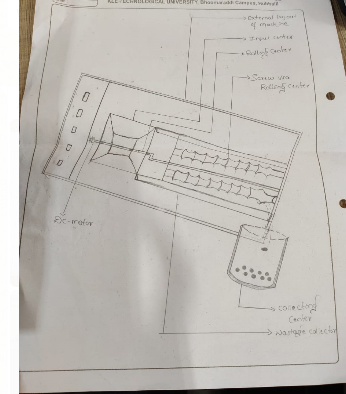 KLE TECHNOLOGICAL UNIVERSITY,
External layout
of machine
Input center
Rolling Center
Screw
Rolling Center
motor
Center
Wastage collector